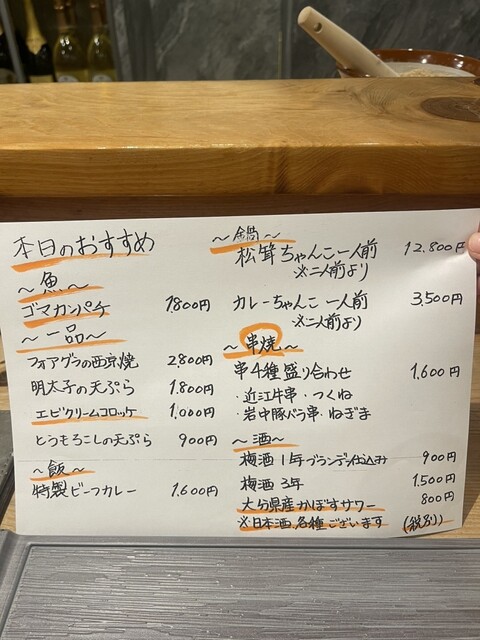 本日のおすすめ
～魚～
ゴマカンパチ 1,800円
～一品～
フォアグラの西京焼 2,800円
明太子の天ぷら 1,800円
エビクリームコロッケ 1,000円
とうもろこしの天ぷら 900円
～飯～
特製ビーフカレー 1,600円
～鍋～
松茸ちゃんこ一人前 12,800円
※二人前より
カレーちゃんこ一人前 3,500円
※二人前より
～串焼～
串4種盛り合わせ 1,600円
・近江牛串・つくね
・岩中豚バラ串・ねぎま
～酒～
梅酒1年ブランデー仕込み 900円
梅酒3年 1,500円
大分県産かぼすサワー 800円
※日本酒、各種ございます (税別)